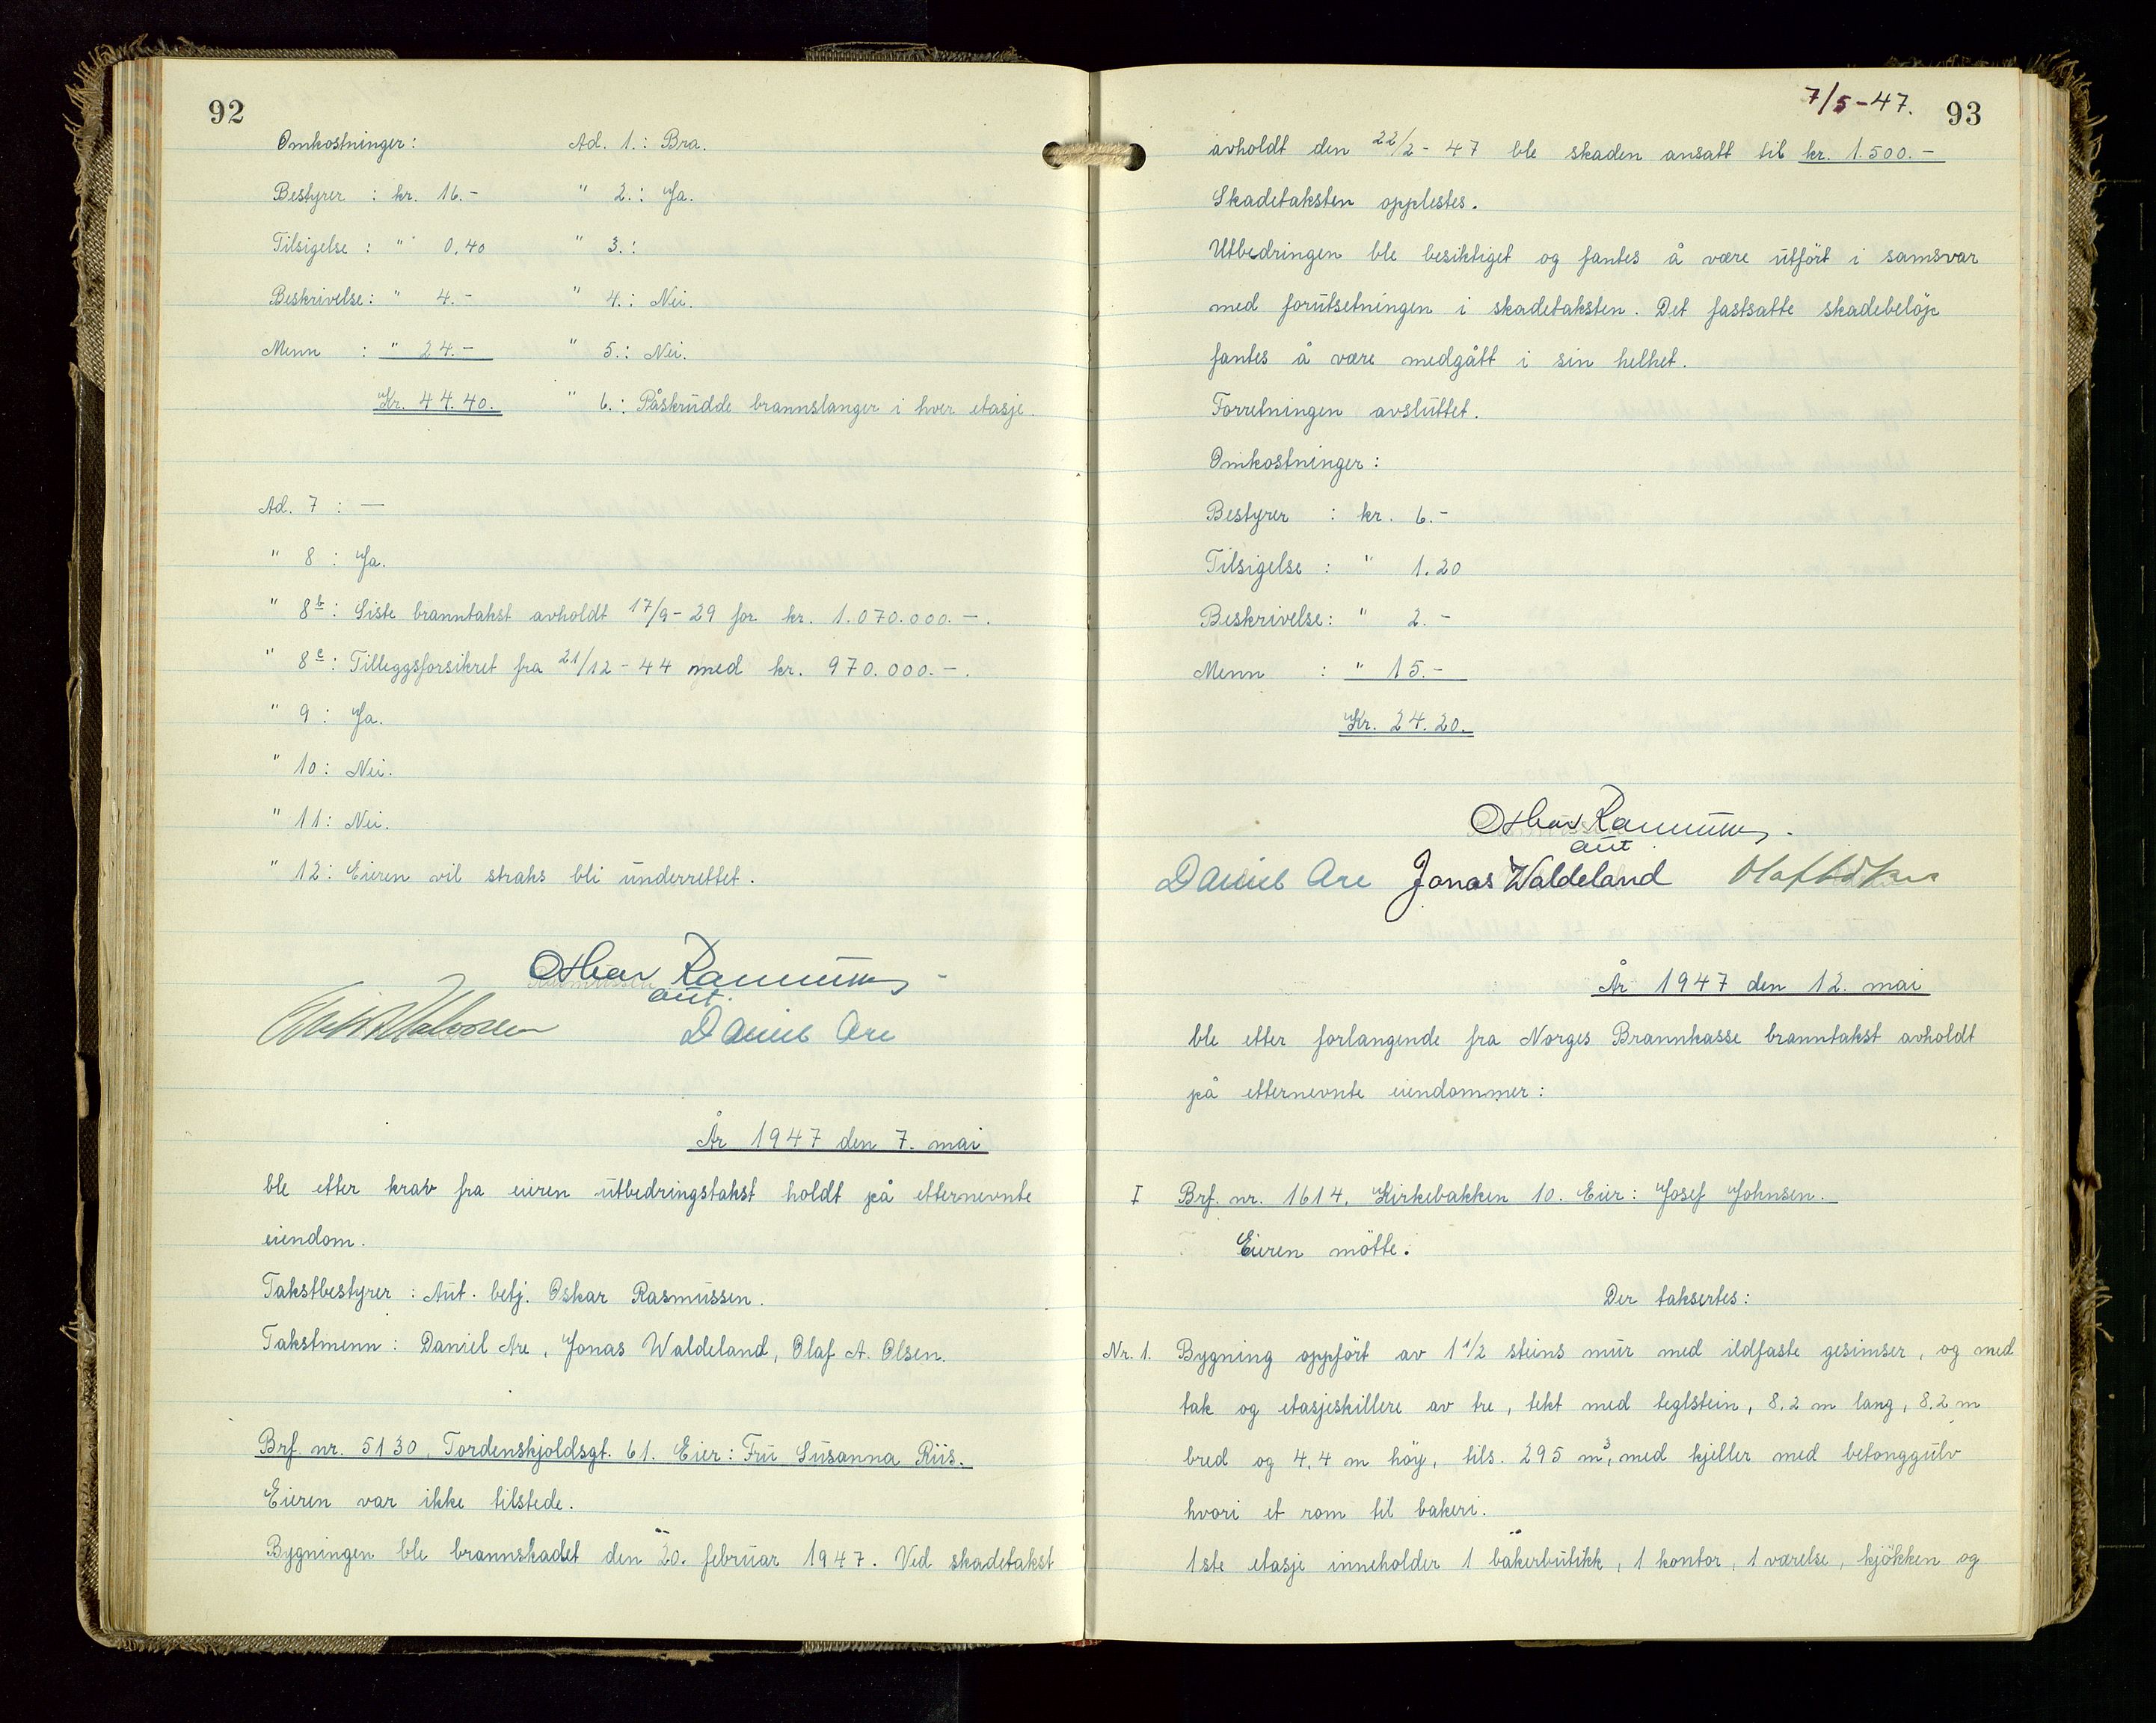 92
Omkostninger: Ad. 1.: Bra.
Bestyrer : kr. 16.- " 2.: Ja.
Tilsigelse : " 0.40 " 3.:
Beskrivelse: " 4.- " 4.: Nei.
Menn : " 24.- " 5.: Nei.
Kr. 44.40. " 6.: Påskrudde brannslanger i hver etasje.
Ad. 7 : —
" 8 : Ja.
" 8b: Siste branntakst avholdt 17/9-29 for kr. 1.070.000.-.
" 8c: Tilleggsforsikret fra 21/12-44 med kr. 970.000.-.
" 9 : Ja.
" 10: Nei.
" 11: Nei.
" 12: Eieren vil straks bli underrettet.
Oskar Rasmussen
aut.
Daniel Are
År 1947 den 7. mai
ble etter krav fra eieren utbedringstakst holdt på etternevnte
eiendom.
Takstbestyrer : Aut. betj. Oskar Rasmussen.
Takstmenn : Daniel Are, Jonas Waldeland, Olaf A. Olsen.
Brf. nr. 5130, Tordenskjoldsgt. 61. Eier: Fru Susanna Riis.
Eieren var ikke tilstede.
Bygningen ble brannskadet den 20. februar 1947. Ved skadetakst
7/5-47. 93
avholdt den 22/2-47 ble skaden ansatt til kr. 1.500.-
Skadetaksten opplestes.
Utbedringen ble besiktiget og fantes å være utfört i samsvar
med forutsetningen i skadetaksten. Det fastsatte skadebelöp
fantes å være medgått i sin helhet.
Forretningen avsluttet.
Omkostninger:
Bestyrer : kr. 6.-
Tilsigelse : " 1.20
Beskrivelse: " 2.-
Menn : " 15.-
Kr. 24.20.
Oskar Rasmussen.
aut.
Daniel Are Jonas Waldeland Olaf A Olsen
År 1947 den 12. mai
ble etter forlangende fra Norges Brannkasse branntakst avholdt
på etternevnte eiendommer:
I Brf. nr. 1614. Kirkebakken 10. Eier: Josef Johnsen.
Eieren mötte.
Der taksertes:
Nr. 1. Bygning oppfört av 1 1/2 steins mur med ildfaste gesimser, og med
tak og etasjeskillere av tre, tekt med teglstein, 8.2 m lang, 8.2 m
bred og 4.4 m höy, tils. 295 m³, med kjeller med betonggulv
hvori et rom til bakeri.
1ste etasje inneholder 1 bakerbutikk, 1 kontor, 1 værelse, kjökken og